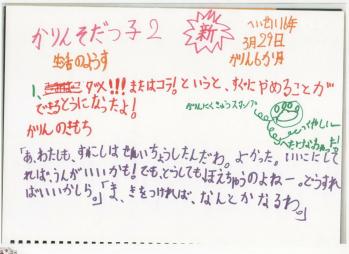 かりんそだっ子2
新
へいせい16年
3月29日
かりん6か月
生活のようす
1、ダメ!!!またはコラ!というと、すぐにやめることが
できるようになったよ!
かりんにくきゅうスタンプ
かりんのきもち
「あ、わたしも、すこしはせいちょうしたんだわ。よかった。いいこにして
ればうんがいいかも!でも、どうしてもほえちゃうのよねー。どうすれ
ばいいかしら。」「ま、きをつければ、なんとかなるわ。」